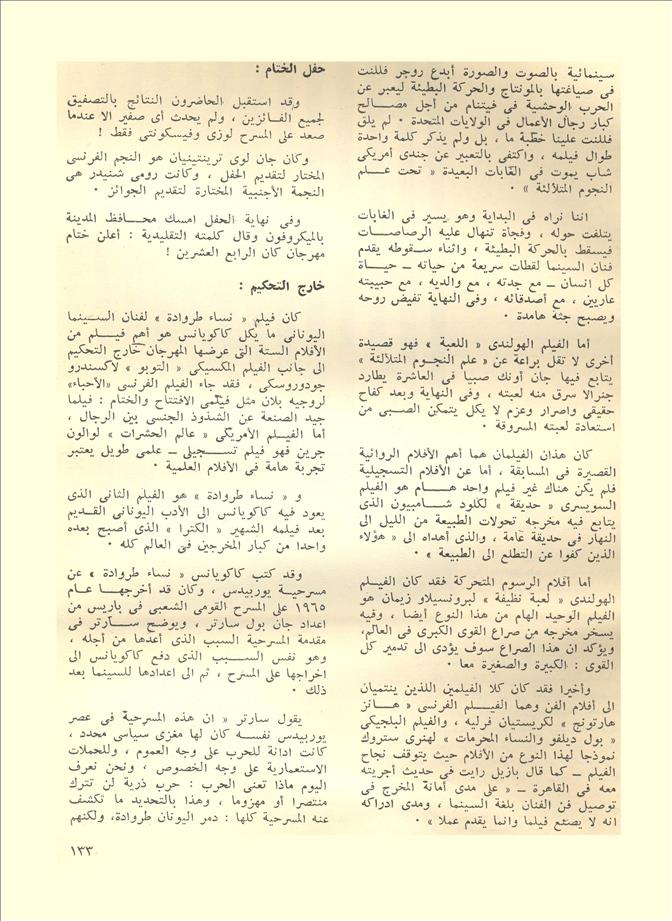 سينمائية بالصوت والصورة أبدع روجر فللنت
فى صياغتها بالمونتاج والحركة البطيئة ليعبر عن
الحرب الوحشية فى فيتنام من أجل مصــالح
كبار رجال الأعمال فى الولايات المتحدة ٠ لم يلق
فللنت علينا خطبة ما ، بل ولم يذكر كلمة واحدة
طوال فيلمه ، واكتفى بالتعبير عن جندى أمريكى
شاب يموت فى الغابات البعيدة « تحت عـــلم
النجوم المتلألئة » ٠
اننا نراه فى البداية وهو يسير فى الغابات
يتلفت حوله ، وفجأة تنهال عليه الرصاصــات
فيسقط بالحركة البطيئة ، وأثناء سـقوطه يقدم
فنان السينما لقطات سريعة من حياته ــ حيــاة
كل انسان ــ مع جدته ، مع والديه ، مع حبيبته
عاريين ، مع أصدقائه ، وفى النهاية تفيض روحه
ويصبح جثة هامدة ٠
أما الفيلم الهولندى « اللعبة » فهو قصيدة
أخرى لا تقل براعة عن « علم النجــوم المتلألئة »
يتابع فيها جان أونك صبيا فى العاشرة يطارد
جنرالا سرق منه لعبته ، وفى النهاية وبعد كفاح
حقيقى واصرار وعزم لا يكل يتمكن الصــبى من
استعادة لعبته المسروقة ٠
كان هذان الفيلمان هما أهم الأفلام الروائية
القصيرة فى المسابقة ، أما عن الأفلام التسجيلية
فلم يكن هناك غير فيلم واحد هــــام هو الفيلم
السويسرى « حديقة » لكلود شــامبيون الذى
يتابع فيه مخرجه تحولات الطبيعة من الليل الى
النهار فى حديقة عامة ، والذى أهداه الى « هؤلاء
الذين كفوا عن التطلع الى الطبيعة » ٠
أما أفلام الرسوم المتحركة فقد كان الفيــلم
الهولندى « لعبة نظيفة » لبرونسيلاو زيمان هو
الفيلم الوحيد الهام من هذا النوع أيضا ، وفيه
يسخر مخرجه من صراع القوى الكبرى فى العالم،
ويؤكد ان هذا الصراع سوف يؤدى الى تدمير كل
القوى : الكبيرة والصغيرة معا ٠
وأخيرا فقد كان كلا الفيلمين اللذين ينتميان
الى أفلام الفن وهما الفيــلم الفرنسى « هــانز
هارتونج » لكريستيان فرليه ، والفيلم البلجيكى
« بول ديلفو والنساء المحرمات » لهنرى ستروك
نموذجا لهذا النوع من الأفلام حيث يتوقف نجاح
الفيلم ــ كما قال بازيل رايت فى حديث أجريته
معه فى القاهرة ــ « على مدى أمانة المخرج فى
توصيل فن الفنان بلغة السينما ، ومدى ادراكه
انه لا يصنع فيلما وانما يقدم عملا » ٠
حفل الختام :
وقد استقبل الحاضرون النتائج بالتصفيق
لجميع الفــائزين ، ولم يحدث أى صفير الا عندما
صعد على المسرح لوزى وفيسكونتى فقط !
وكان جان لوى ترينتينيان هو النجم الفرنسى
المختار لتقديم الحفل ، وكانت رومى شنيدر هى
النجمة الأجنبية المختارة لتقديم الجوائز ٠
وفى نهاية الحفل امسك محــافظ المدينة
بالميكروفون وقال كلمته التقليدية : أعلن ختام
مهرجان كان الرابع العشرين !
خارج التحكيم :
كان فيلم « نساء طروادة » لفنان الســينما
اليونانى ما يكل كاكويانس هو أهم فيــلم من
الأفلام الستة التى عرضها المهرجان خارج التحكيم
الى جانب الفيلم المكسيكى « التوبو » لاكسندرو
جودوروسكى ، فقد جاء الفيلم الفرنسى «الأحباء»
لروجيه بلان مثل فيلمى الافتتاح والختام : فيلما
جيد الصنعة عن الشذوذ الجنسى بين الرجال ،
أما الفيــلم الأمريكى « عالم الحشرات » لوالون
جرين فهو فيلم تســجيلى ــ علمى طويل يعتبر
تجربة هامة فى الأفلام العلمية ٠
و « نساء طروادة » هو الفيلم الثانى الذى
يعود فيه كاكويانس الى الأدب اليونانى القــديم
بعد فيلمه الشهير « الكترا » الذى أصبح بعده
واحدا من كبار المخرجين فى العالم كله ٠
وقد كتب كاكويانس « نساء طروادة » عن
مسرحيــة يوربيدس ، وكان قد أخرجهــا عــام
١٩٦٥ على المسرح القومى الشعبى فى باريس من
اعداد جان بول سارتر ، ويوضح ســارتر فى
مقدمة المسرحية السبب الذى أعدها من أجله ،
وهو نفس الســـبب الذى دفع كاكويانس الى
اخراجها على المسرح ، ثم الى اعدادها للسينما بعد
ذلك ٠
يقول سارتر « ان هذه المسرحية فى عصر
يوربيدس نفســه كان لها مغزى سياسى محدد ،
كانت ادانة للحرب على وجه العموم ، وللحملات
الاستعمارية على وجه الخصوص ، ونحن نعرف
اليوم ماذا تعنى الحرب : حرب ذرية لن تترك
منتصرا أو مهزوما ، وهذا بالتحديد ما تكشف
عنه المسرحية كلها : دمر اليونان طروادة، ولكنهم
١٣٣